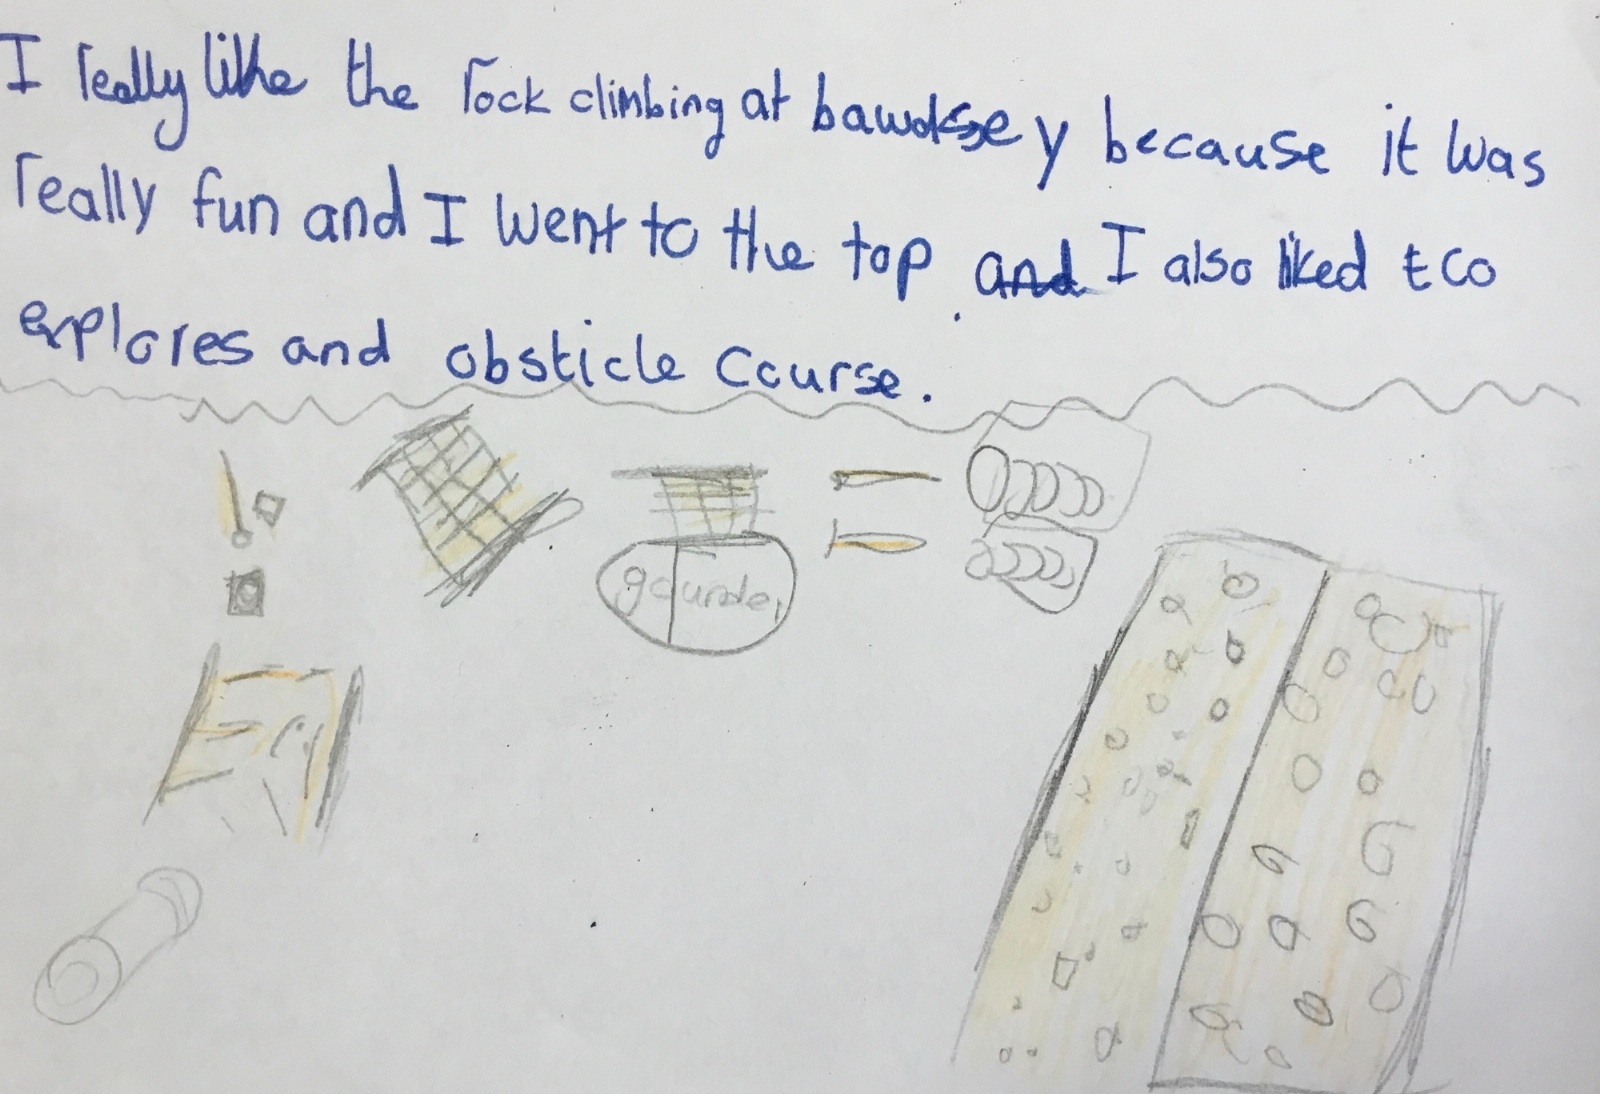 I really like the rock climbing at bawdsey because it was
really fun and I went to the top. and I also liked tco
explores and obsticle course.